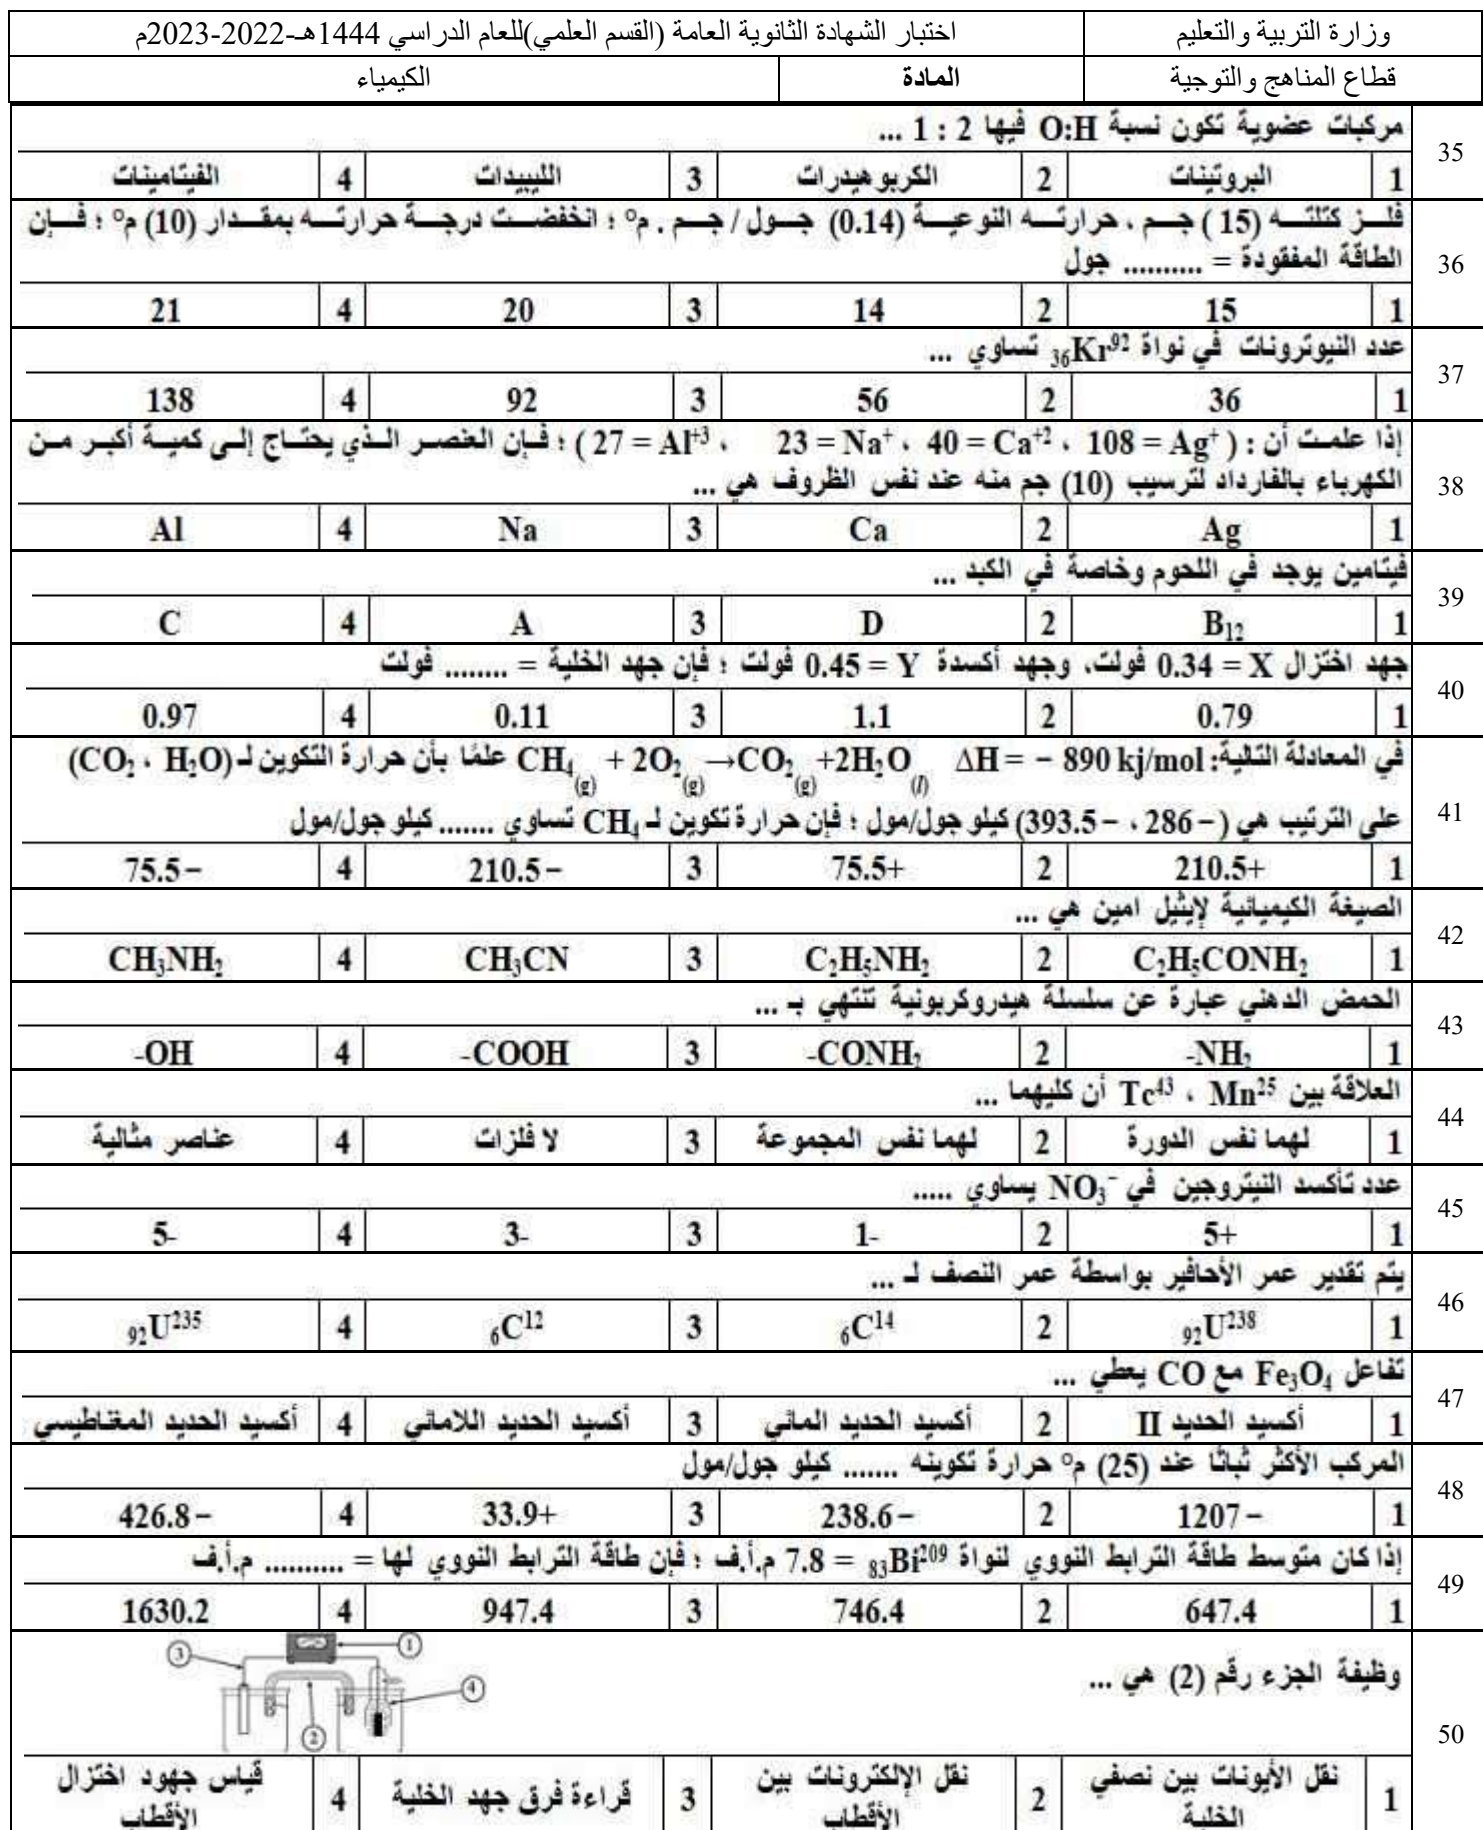 وزارة التربية والتعليم اختبار الشهادة الثانوية العامة (القسم العلمي)للعام الدراسي 1444هـ-2022-2023م
قطاع المناهج والتوجية المادة الكيمياء
35 مركبات عضوية تكون نسبة O:H فيها 2 : 1 ...
1 البروتينات 2 الكربوهيدرات 3 الليبيدات 4 الفيتامينات
36 فلز كتلته (15) جم ، حرارته النوعية (0.14) جول / جم . م° ؛ انخفضت درجة حرارته بمقدار (10) م° ؛ فإن
الطاقة المفقودة = .......... جول
1 15 2 14 3 20 4 21
37 عدد النيوترونات في نواة ₃₆Kr⁹² تساوي ...
1 36 2 56 3 92 4 138
38 إذا علمت أن : ( Ag⁺ = 108 ، Ca⁺² = 40 ، Na⁺ = 23 ، Al⁺³ = 27 ) ؛ فإن العنصر الذي يحتاج إلى كمية أكبر من
الكهرباء بالفارداد لترسيب (10) جم منه عند نفس الظروف هي ...
1 Ag 2 Ca 3 Na 4 Al
39 فيتامين يوجد في اللحوم وخاصة في الكبد ...
1 B₁₂ 2 D 3 A 4 C
40 جهد اختزال X = 0.34 فولت، وجهد أكسدة Y = 0.45 فولت ؛ فإن جهد الخلية = ........ فولت
1 0.79 2 1.1 3 0.11 4 0.97
41 في المعادلة التالية: CH₄(g) + 2O₂(g) →CO₂(g) +2H₂O(l) ΔH = − 890 kj/mol علمًا بأن حرارة التكوين لـ (CO₂ ، H₂O)
على الترتيب هي (−286 ، −393.5) كيلو جول/مول ؛ فإن حرارة تكوين لـ CH₄ تساوي ....... كيلو جول/مول
1 210.5+ 2 75.5+ 3 210.5− 4 75.5−
42 الصيغة الكيميائية لإيثيل امين هي ...
1 C₂H₅CONH₂ 2 C₂H₅NH₂ 3 CH₃CN 4 CH₃NH₂
43 الحمض الدهني عبارة عن سلسلة هيدروكربونية تنتهي بـ ...
1 -NH₂ 2 -CONH₂ 3 -COOH 4 -OH
44 العلاقة بين Mn²⁵ ، Tc⁴³ أن كليهما ...
1 لهما نفس الدورة 2 لهما نفس المجموعة 3 لا فلزات 4 عناصر مثالية
45 عدد تأكسد النيتروجين في NO₃⁻ يساوي .....
1 5+ 2 1- 3 3- 4 5-
46 يتم تقدير عمر الأحافير بواسطة عمر النصف لـ ...
1 ₉₂U²³⁸ 2 ₆C¹⁴ 3 ₆C¹² 4 ₉₂U²³⁵
47 تفاعل Fe₃O₄ مع CO يعطي ...
1 أكسيد الحديد II 2 أكسيد الحديد المائي 3 أكسيد الحديد اللامائي 4 أكسيد الحديد المغناطيسي
48 المركب الأكثر ثباتًا عند (25) م° حرارة تكوينه ....... كيلو جول/مول
1 1207− 2 238.6− 3 33.9+ 4 426.8−
49 إذا كان متوسط طاقة الترابط النووي لنواة ₈₃Bi²⁰⁹ = 7.8 م.أ.ف ؛ فإن طاقة الترابط النووي لها = .......... م.أ.ف
1 647.4 2 746.4 3 947.4 4 1630.2
50 وظيفة الجزء رقم (2) هي ...
1 2 3 4
1 نقل الأيونات بين نصفي الخلية 2 نقل الإلكترونات بين الأقطاب 3 قراءة فرق جهد الخلية 4 قياس جهود اختزال الأقطاب